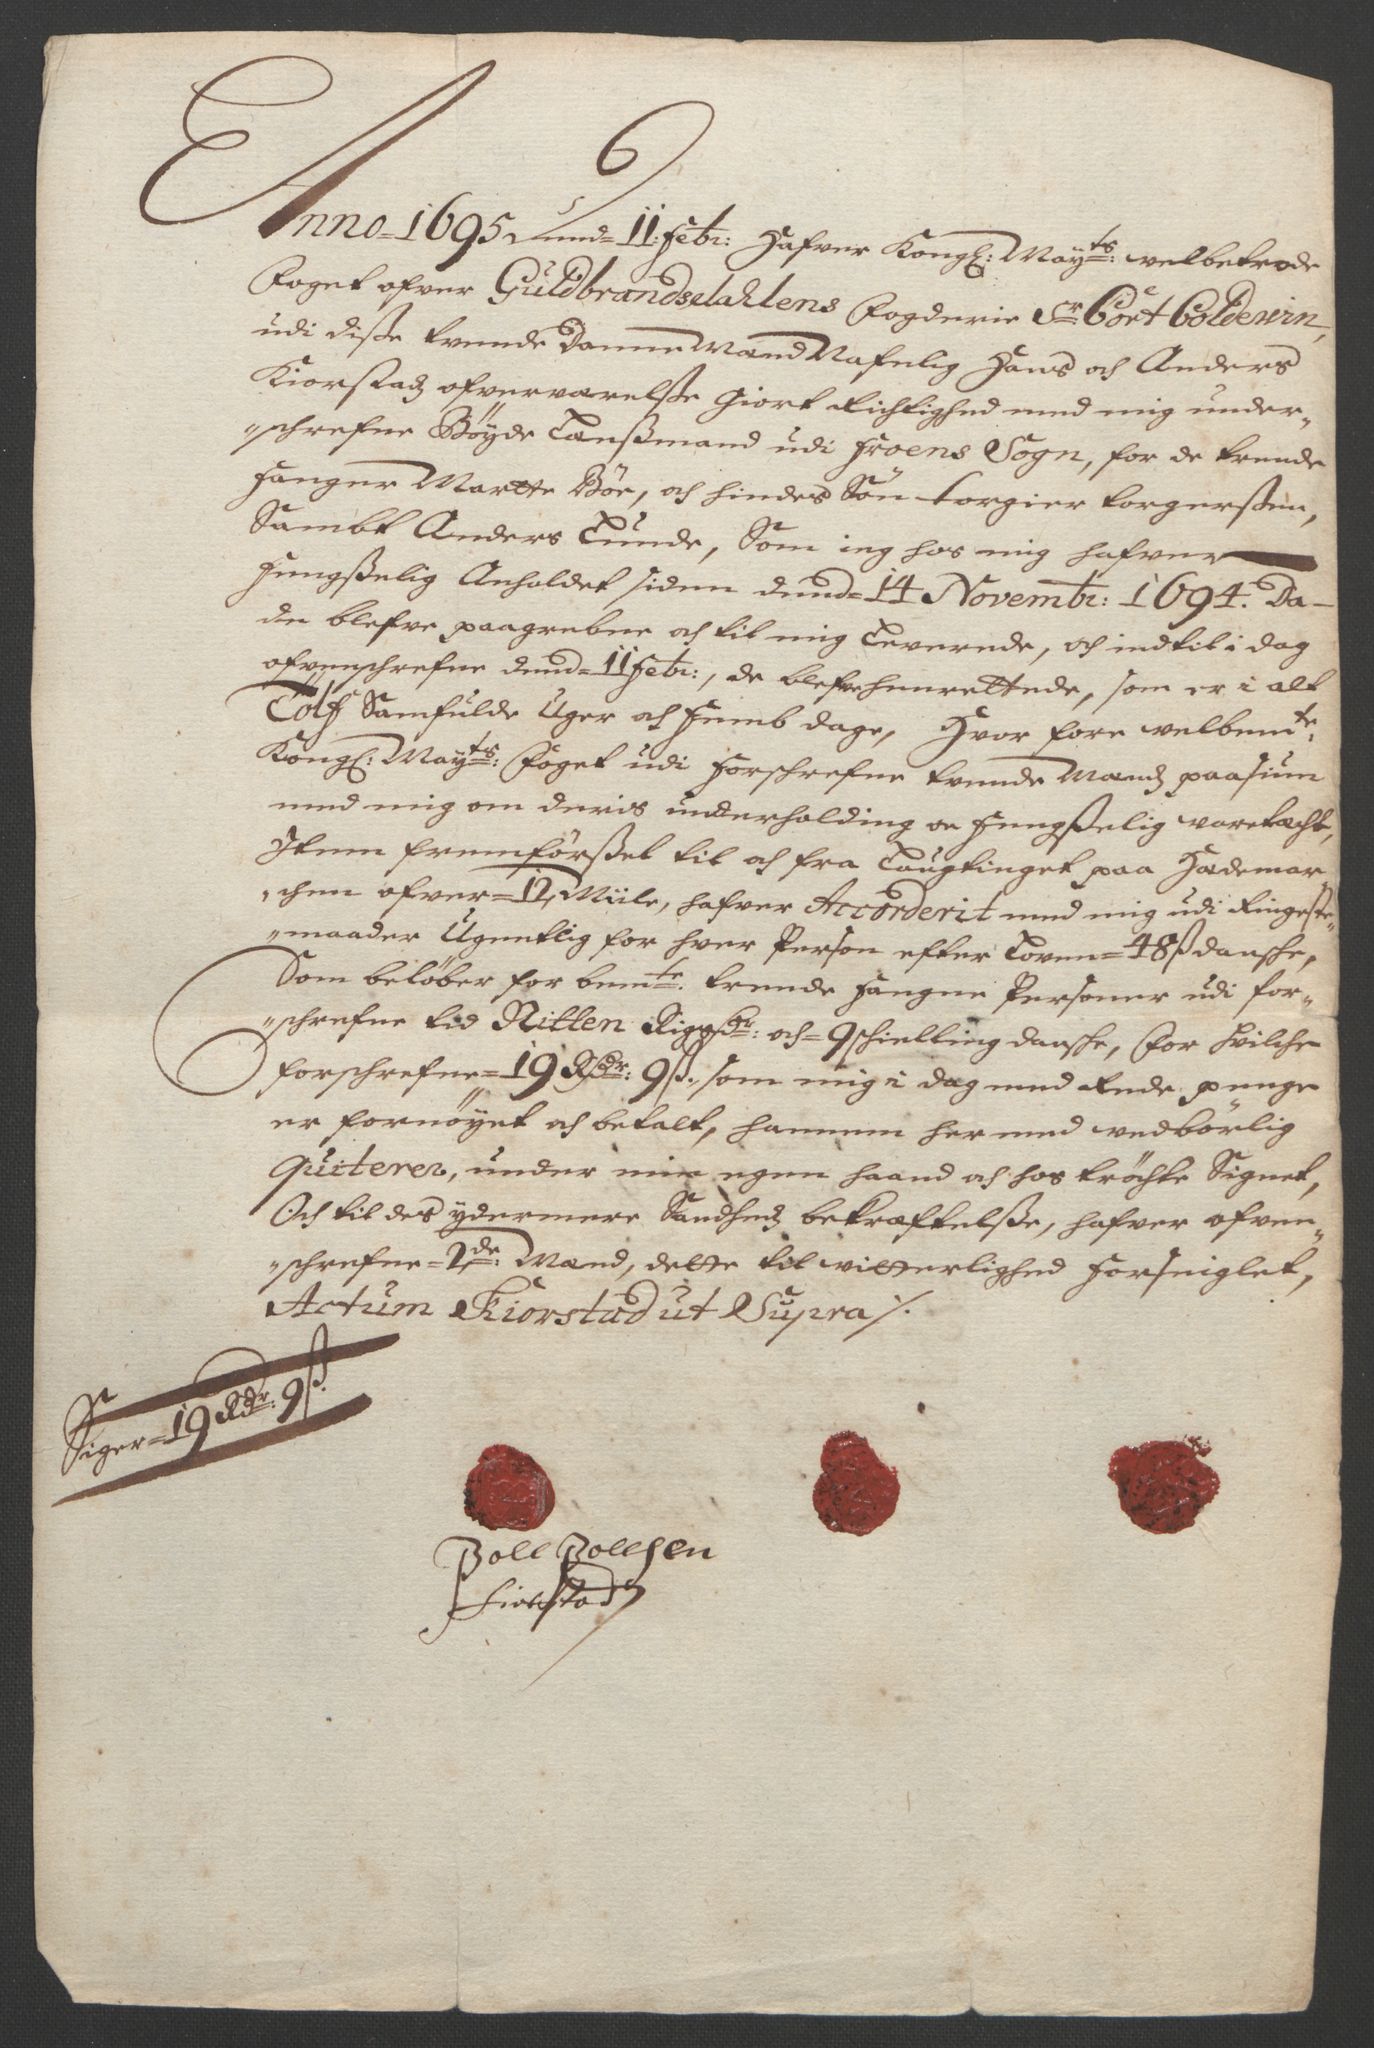 Anno = 1695 = dend = 11: Febr: Hafver Kongl: May:ts: velbetrode
Foget ofver Guldbrandsdahlens Fogderie Sr Cort Coldewin,
udi disse tvende Danne Mænd Nafnlig Hans och Anders
Kiorstad ofverværelsse Giort Richtighed med mig under-
"schrefne Böyde Lensßmand udi Froens Sogn, for de trende
Fanger Martte Böe, och hindes Sön Torgier Torgerssen,
Sambt Anders Lunde, Som ieg hos mig hafver
Fengsselig Anholdet siden dend = 14 Novembr: 1694. Da
de blefve paagrebne och til mig Leverede, och indtil i dag
ofvenschrefne dend = 11 Febr:, de blefve henrettede, som er i alt
Tolf Samfulde Uger och Femb dage, Hvor fore velbemte:
Kongl: Mayts: Foget udi Forschrefne tvende Mænds paasiun
med mig om deris underholding oc Fengsselig varetæcht,
Item fremförsset til och fra Laugtinget paa Hademar
"chen ofver = 12 Miile, hafver Accorderit med mig udi Ringeste
"maader Ugentlig for hver Person efter Loven = 48 ß dansche,
Som belöber for bemte: trende Fangne Personer udi for-
"schrefne tid Nitten Rigsdr: och = 9 schielling dansche, for hvilche
forschrefne = 19 Rdr: 9 ß: som mig i dag med Rede penge
er fornöyet och betalt, hannem her med vedbörlig
Quiterer, under min egen haand och hos tröchte Signet,
Och til des ydermere Sandheds bekræftelsse, hafver ofven-
"schrefne = 2de: Mænd, dette til vitterlighed Forseiglet,
Actum Kiorstad ut Supra /.
Siger = 19 Rdr: 9 ß.
Poll Pollsen
Kiorstad